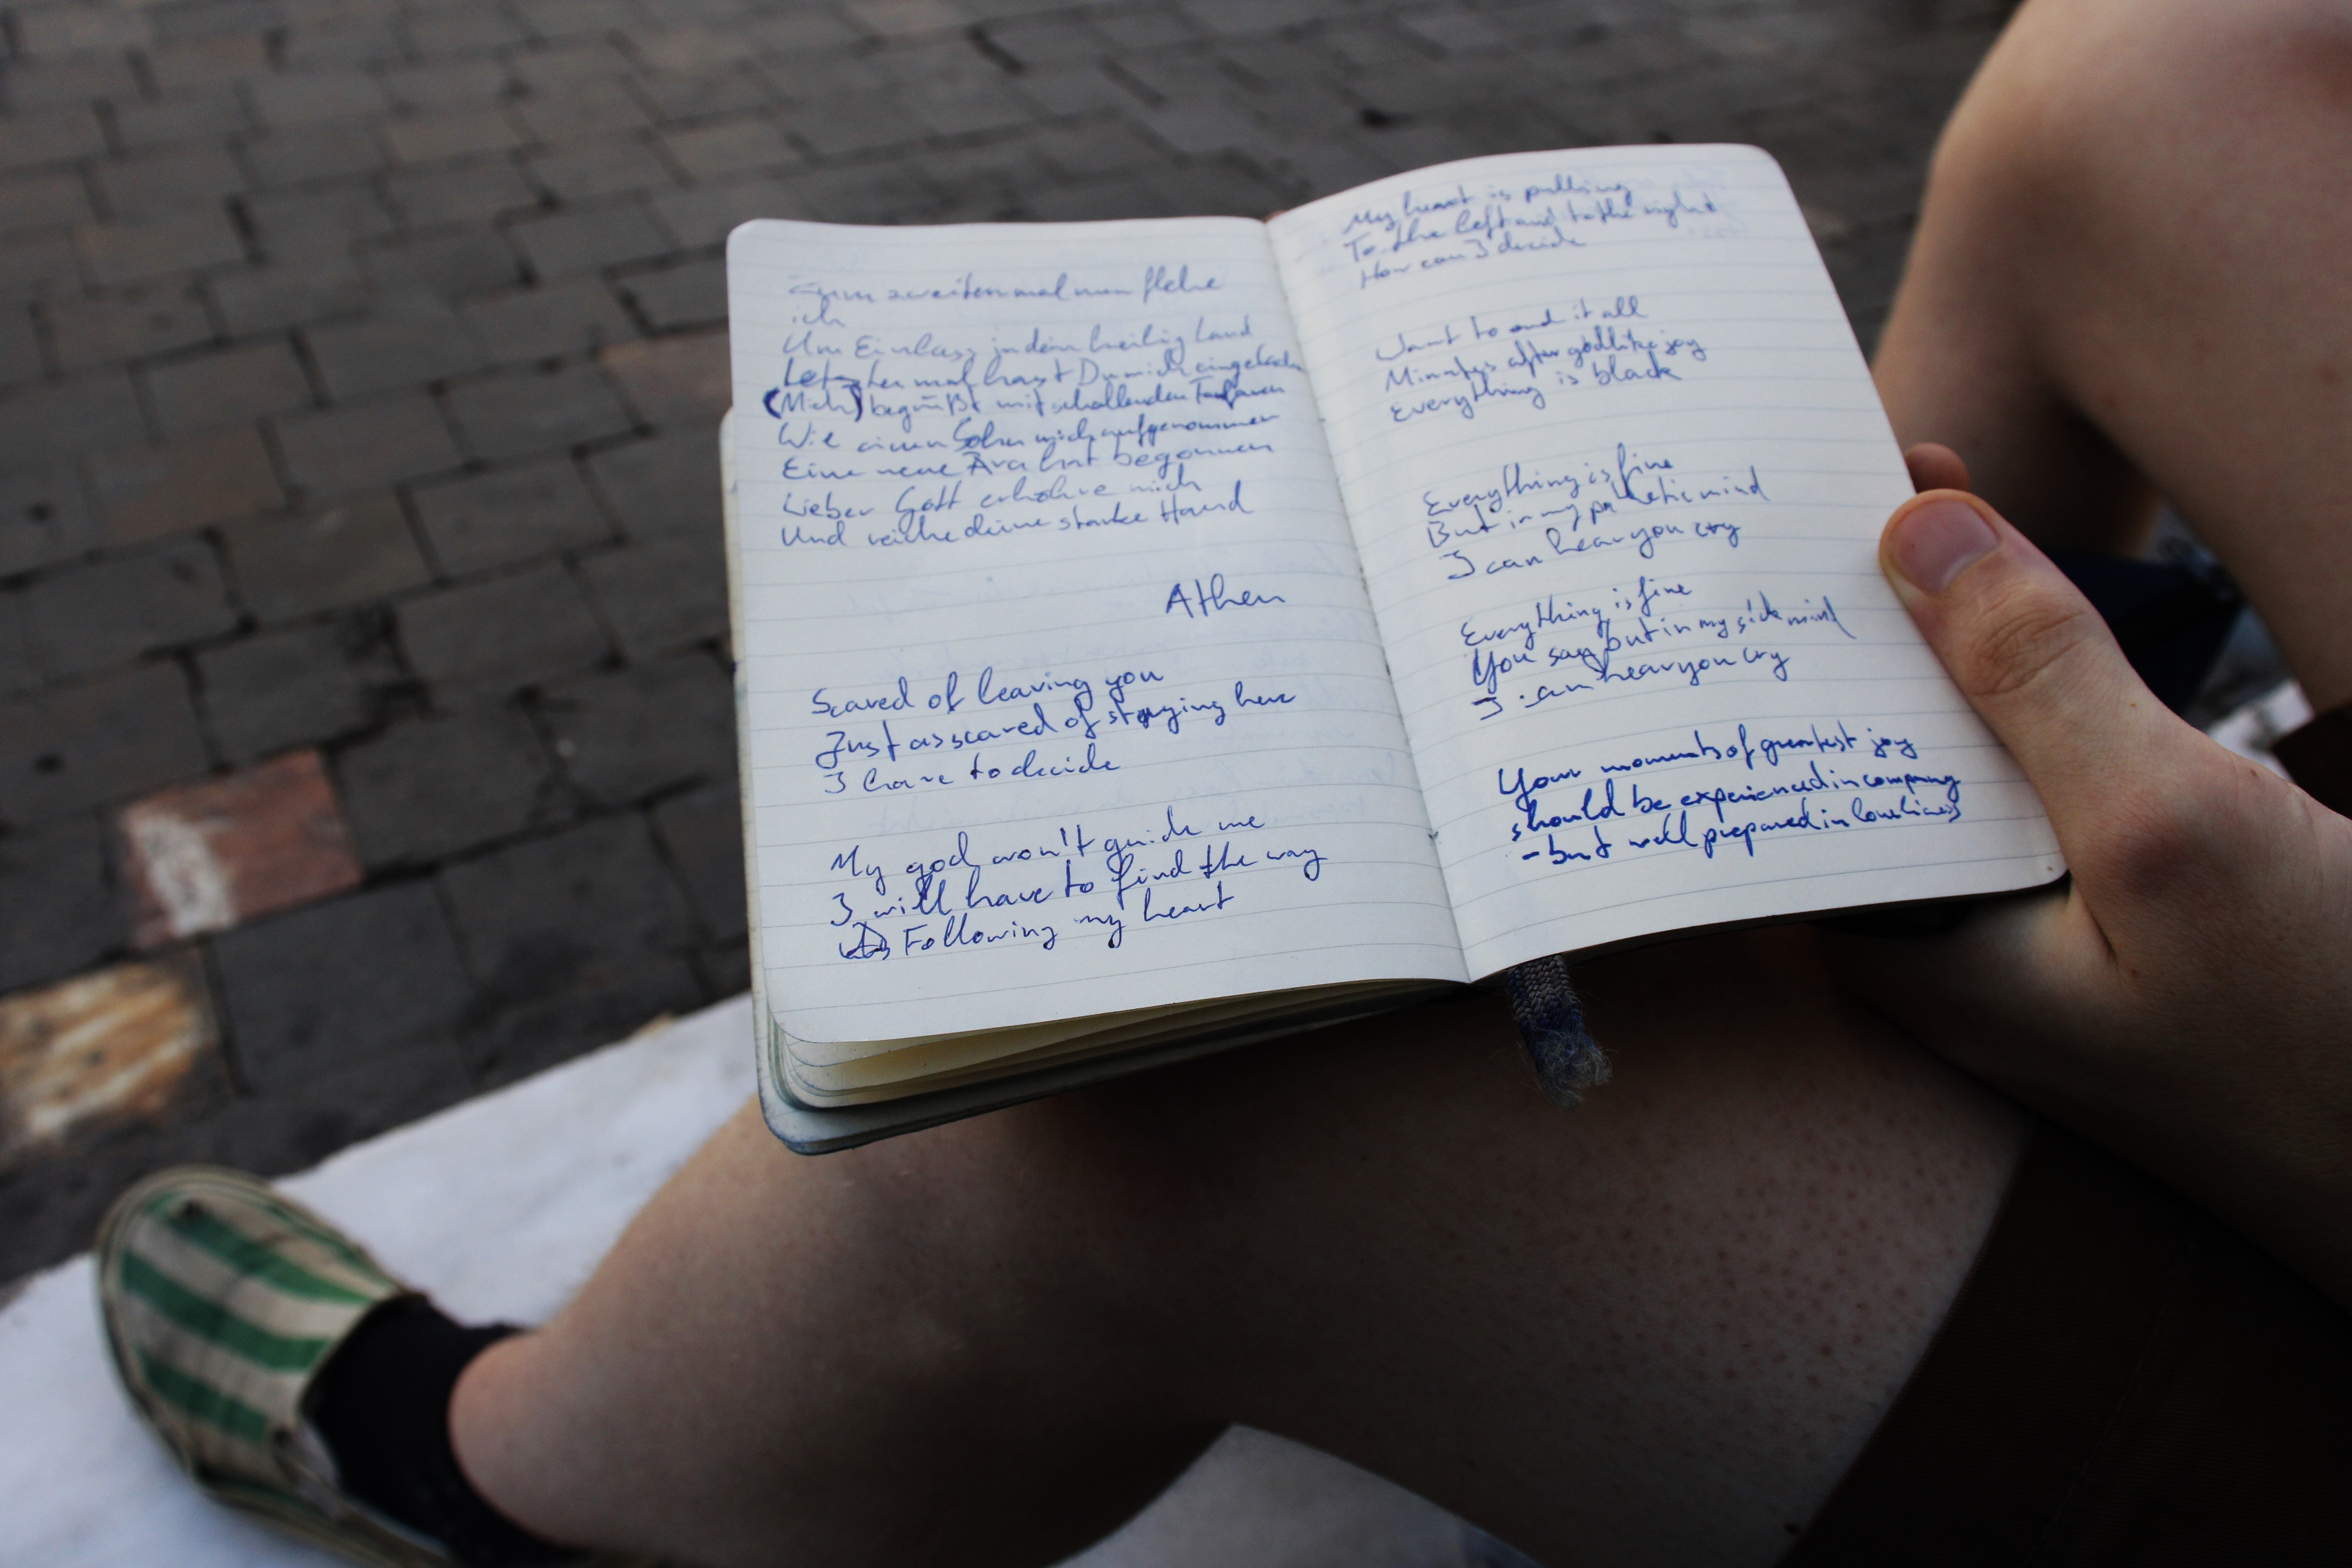 Zum zweitenmal nun flehe
ich
Um Einlass in dein heilig Land
Letztes mal hast Du mich eingeladen
(Mich) begrüßt mit schallenden Fanfaren
Wie einen Sohn mich aufgenommen
Eine neue Ära hat begonnen
Lieber Gott erhöhre mich
Und reiche deine starke Hand
Athen
Scared of leaving you
Just as scared of staying here
I have to decide
My god won't guide me
I will have to find the way
Following my heart
My heart is pulling
To the left and to the right
How can I decide
Want to end it all
Minutes after godlike joy
Everything is black
Everything is fine
But in my pathetic mind
I can hear you cry
Everything is fine
You say but in my sick mind
I can hear you cry
Your moments of greatest joy
should be experienced in company
- but well prepared in loneliness